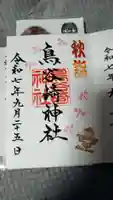 秋詣
鳥谷崎神社
令和七年九月二十五日